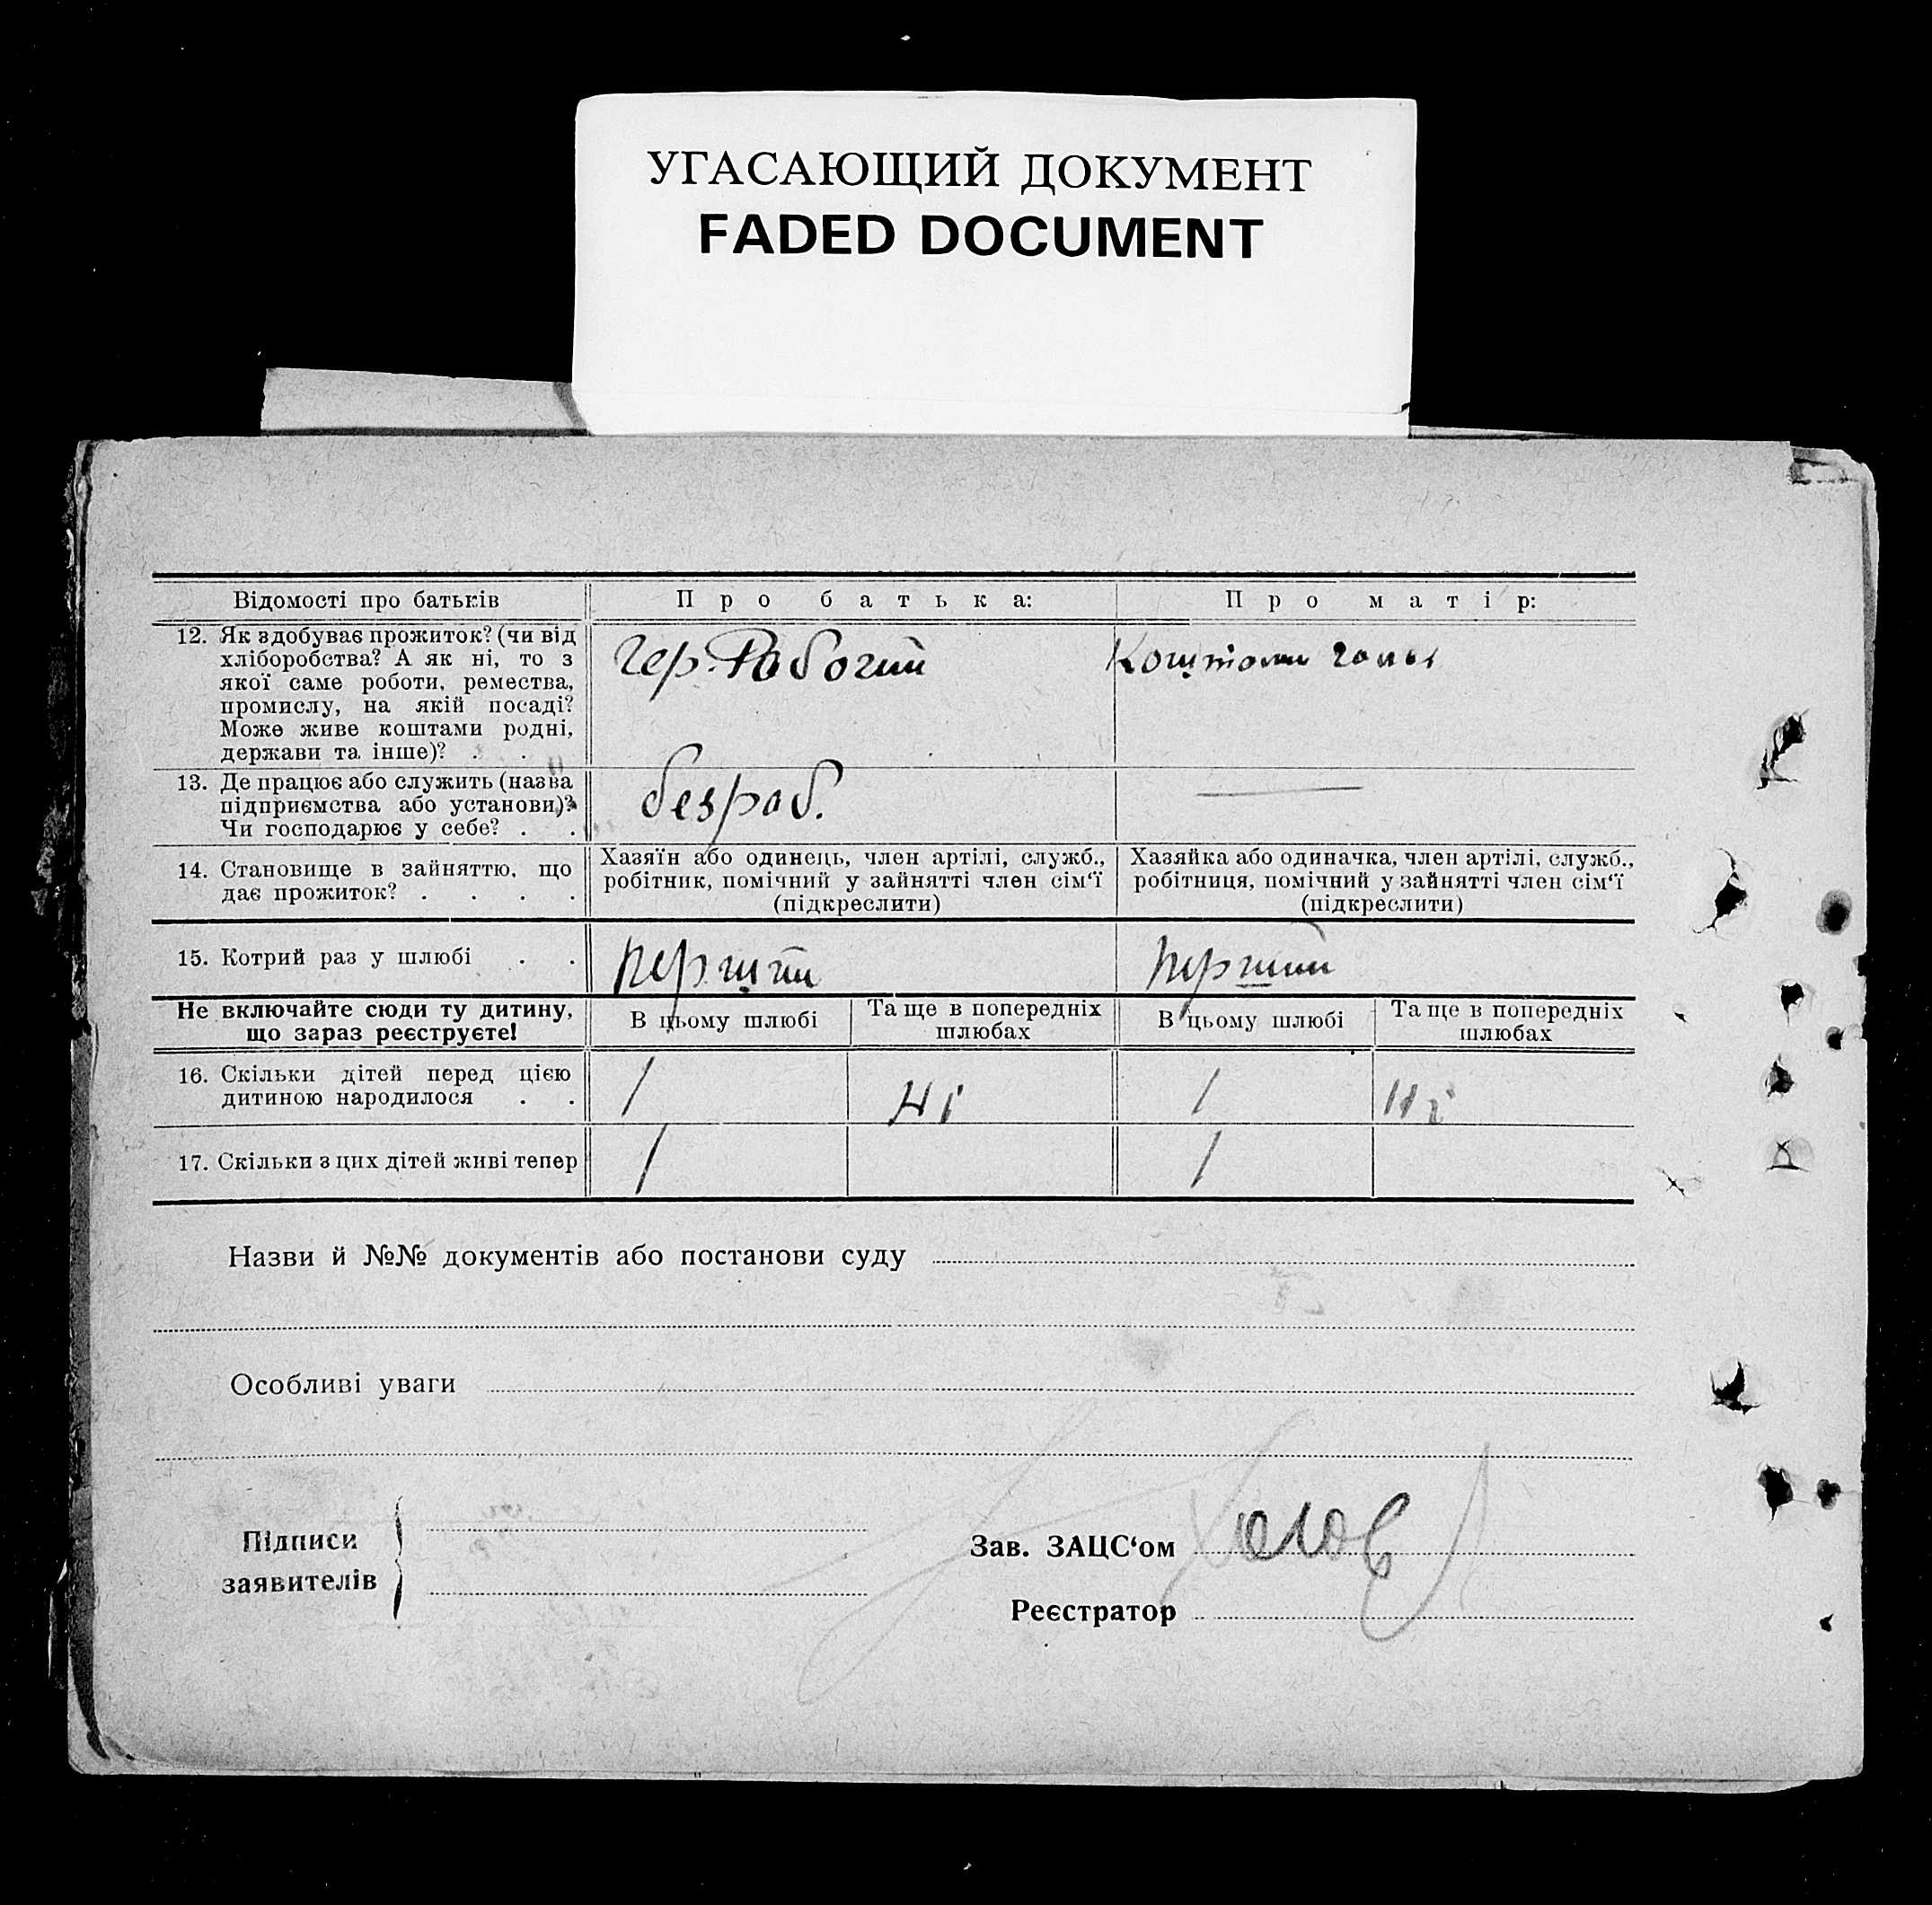 УГАСАЮЩИЙ ДОКУМЕНТ
FADED DOCUMENT
Відомості про батьків
Про батька:
Про матір:
12. Як здобуває прожиток? (чи від
хліборобства? А як ні, то з
якої саме роботи, ремества,
промислу, на якій посаді?
Може живе коштами родні,
держави та інше)? . .
Чер. Робочий
Коштами
13. Де працює або служить (назва
підприємства або установи)?
Чи господарює у себе? . .
безроб.
14. Становище в зайняттю, що
дає прожиток? . . . .
Хазяїн або одинець, член артілі, служб.,
робітник, помічний у зайнятті член сім‘ї
(підкреслити)
Хазяйка або одиначка, член артілі, служб.,
робітниця, помічний у зайнятті член сім‘ї
(підкреслити)
15. Котрий раз у шлюбі . .
перший
перший
Не включайте сюди ту дитину,
що зараз реєструєте!
В цьому шлюбі
Та ще в попередніх
шлюбах
В цьому шлюбі
Та ще в попередніх
шлюбах
16. Скільки дітей перед цією
дитиною народилося . .
1
Ні
1
Ні
17. Скільки з цих дітей живі тепер
1
1
Назви й №№ документів або постанови суду
Особливі уваги
Підписи
заявителів
Зав. ЗАЦС‘ом
Реєстратор